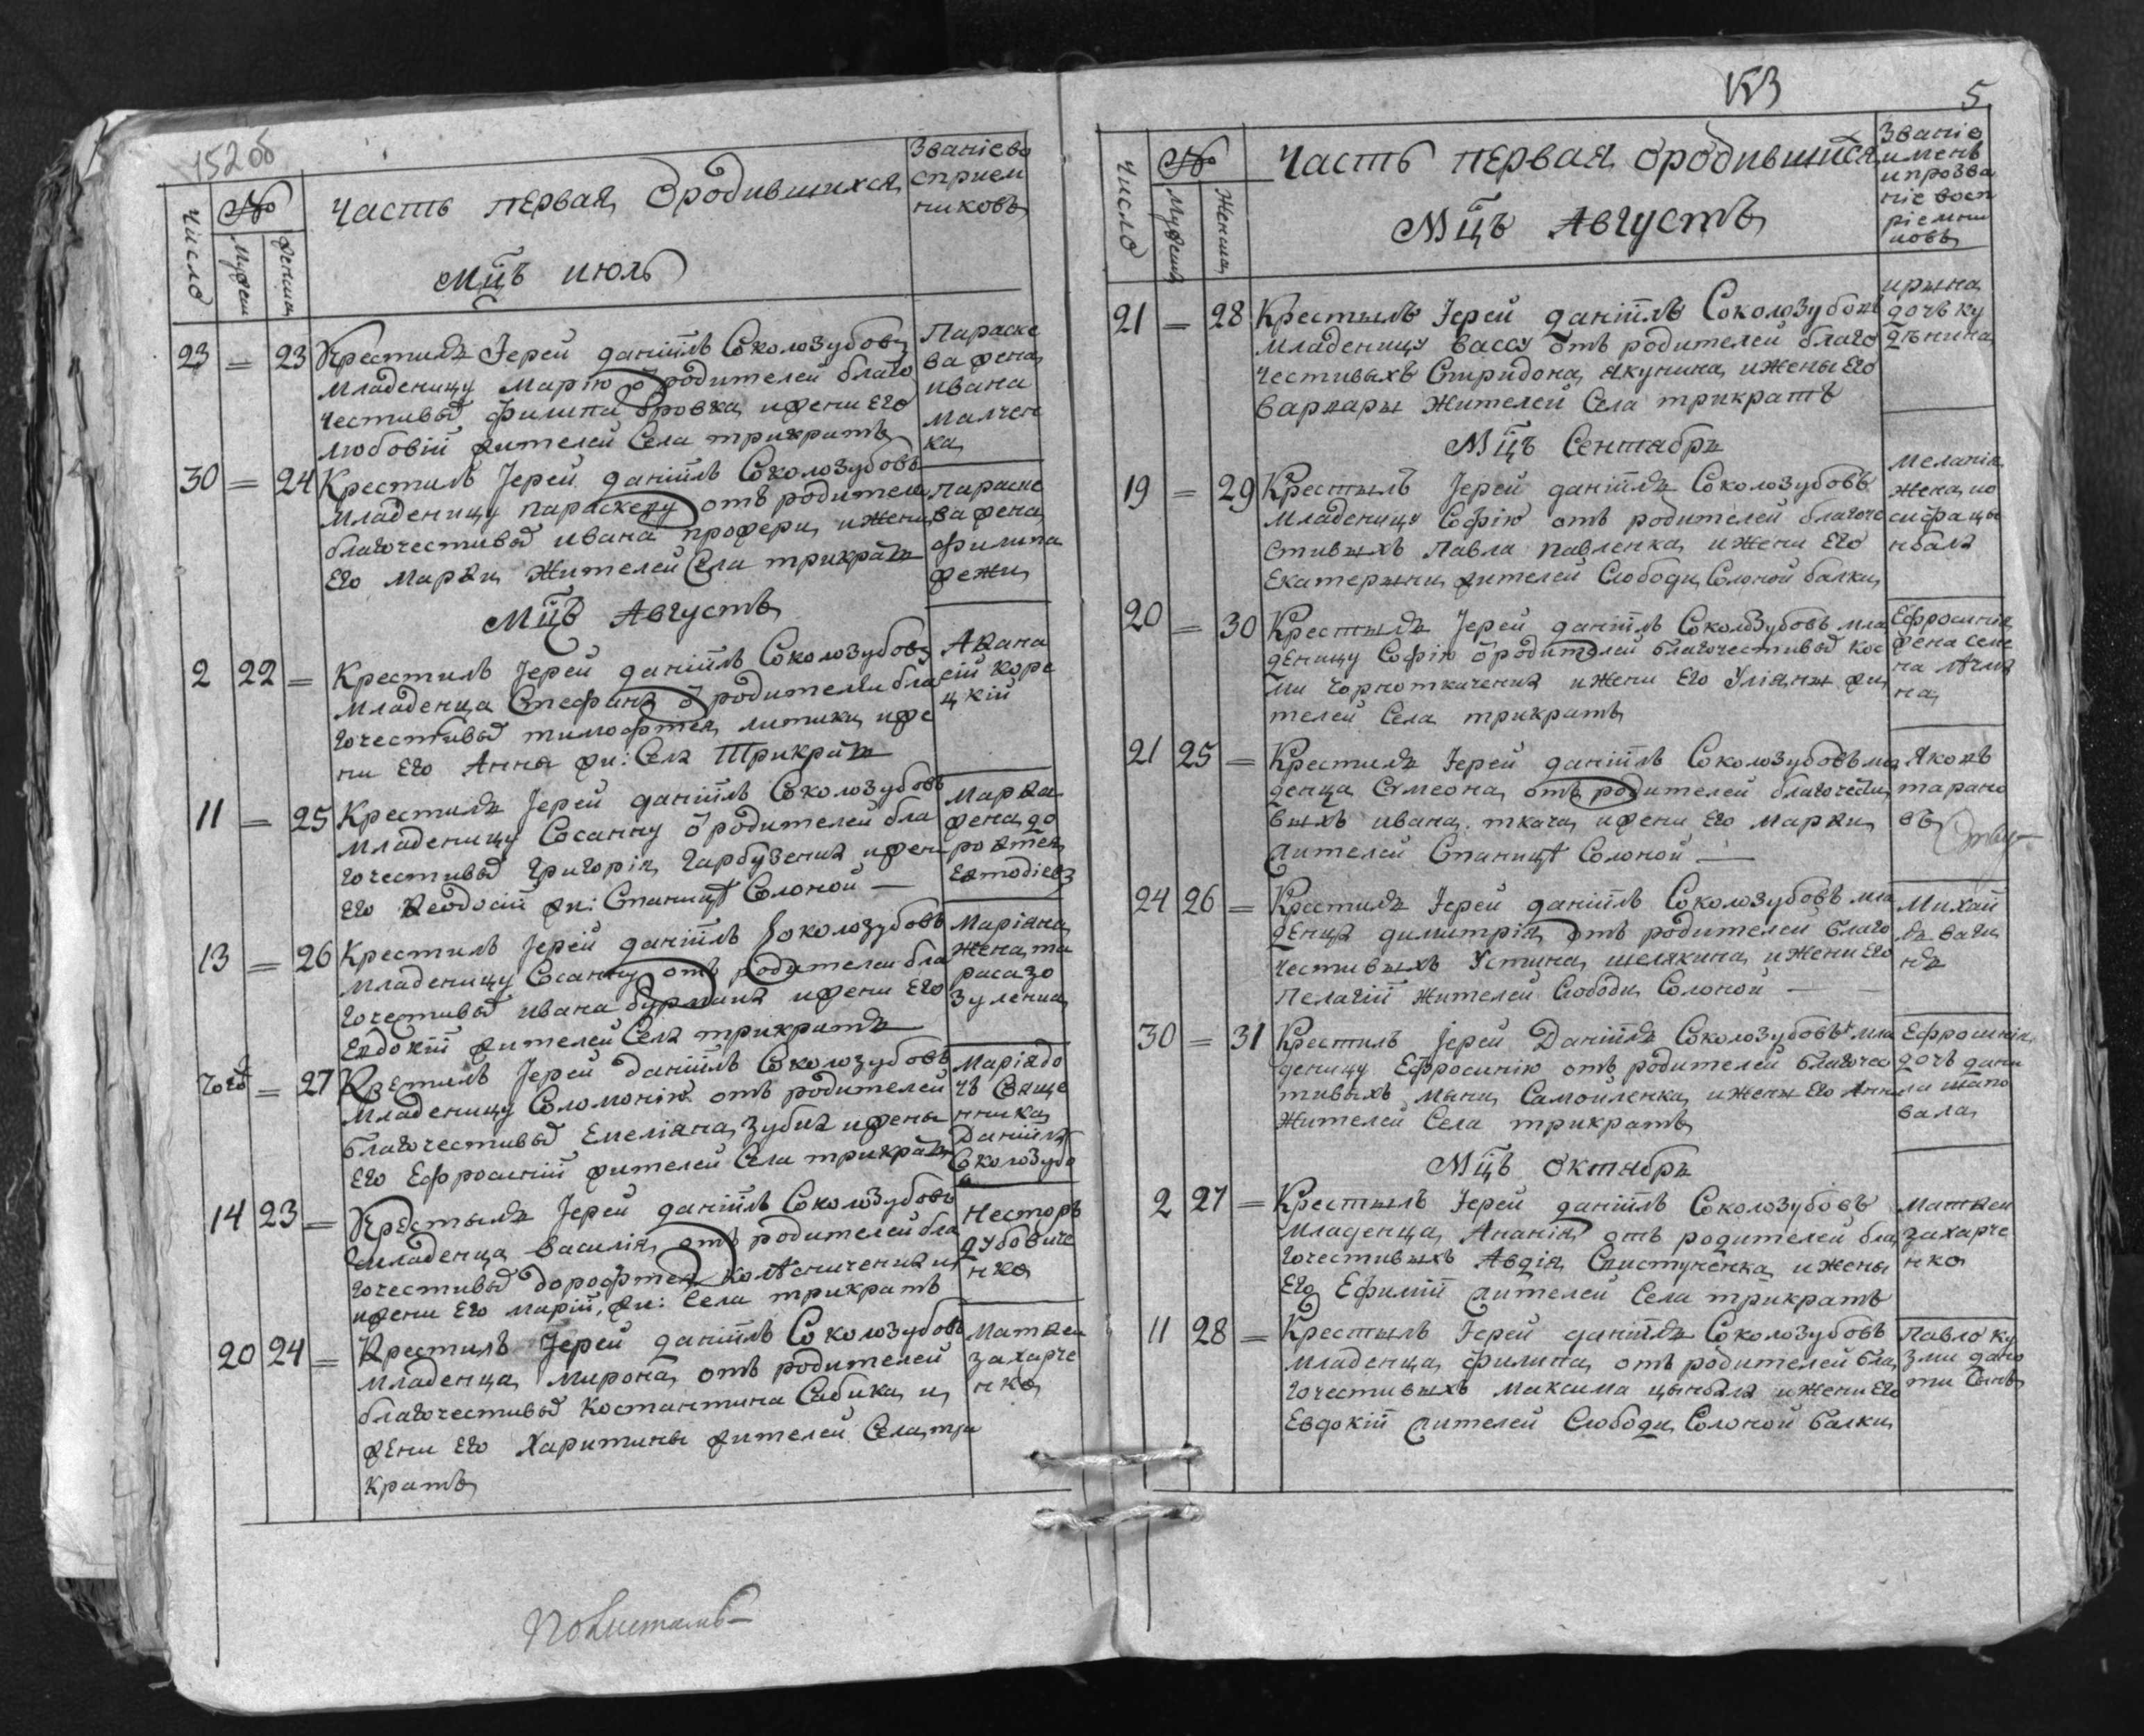 152об
Число
№
Мужеш
Женши
Часть первая, Ородившихся
Мцъ июль
Званіево
сприем
никовъ
23 = 23 Крестилъ Іерей даніилъ Соколозубовъ
младеницу Марію ѿ родителей благо
честивыд филипа бровка, ижени его
любовій жителей Села трикратъ
Параске
ва жена
ивана
малчен
ка
30 = 24 Крестилъ Іерей даніилъ Соколозубовъ
младеницу параскеву отъ родителе
благочестивыд ивана, ижени
Его Марѳи Жителей Села трикратъ
Параске
ва жена
филипа
Мцъ Августъ
2 22 = Крестилъ Іерей даніилъ Соколозубовъ
младенца Стефана ѿ родителей бла
гочестивыд тимофтея литики иже
ни Его Анны жи: Села Трикратъ
Аѳана
сій коре
цкій
11 = 25 Крестилъ Іерей даніилъ Соколозубовъ
младеницу Сосанну ѿ родителей бла
гочестивыд григорія гарбузенка ижени
его Ѳеодосіи жи: Станицѣ Солоной —
Марѳа
жена до
роѳтея
13 = 26 Крестилъ Іерей даніилъ Соколозубовъ
младеницу Сосанну отъ родителей бла
гочестивыд ивана ижени Его
Евдокіи жителей Села трикратъ
Маріана
жена та
раса зо
зуленка
Тогож = 27 Крестилъ Іерей даніилъ Соколозубовъ
младеницу Соломонію отъ родителей
благочестивыд Емеліана, зубка ижены
его Ефросиніи жителей Села трикратъ
Марія до
чъ Свяще
нника
Даніила
Соколозубо
14 23 = Крестылъ Іерей даніилъ Соколозубовъ
младенца василія отъ родителей бла
гочестивыд дорофтея колѣсниченка и
ижени Его марій, жи: Села трикратъ
Несторъ
дубовиче
нко
20 24 = Крестилъ Іерей даніилъ Соколозубовъ
младенца Мирона отъ родителей
благочестивыд Костантина Сабика, и
жени его Харитины жителей Села три
кратъ
Матвеи
захарче
нко
КЗ
5
Число
№
Мужеш
Женши
Часть первая ородившихся
Мцъ Августъ
Званіе
именъ
ипрозва
ніе восп
ріемни
ковъ
21 = 28 Крестылъ Іерей даніилъ Соколозубовъ
младеницу вассу отъ родителей благо
честивыхъ Спиридона якунина ижены его
варвары Жителей Села трикратъ
ирына
дочъ ку
Мцъ Сентабръ
19 = 29 Крестылъ Іерей даніилъ Соколозубовъ
младеницу Софію отъ родителей благоче
стивыхъ Павла павленка ижени Его
Екатерыни жителей Слободи Солоной балки
Меланія
жена ио
сифа цы
нбала
20 = 30 Крестылъ Іерей даніилъ Соколозубовъ мла
деницу Софію ѿ родителей благочестивыд Кос
ми Чорноткаченка ижени Его Уліяны жи
телей Села трикратъ
Ефросинія
жена семе
на
21 25 = Крестилъ Іерей даніилъ Соколозубовъ мла
денца Сумеона, отъ родителей благочести
выхъ ивана ткача ижени Его марѳи
Жителей Станицѣ Солоной —
Яковъ
тарано
въ
24 26 = Крестилъ Іерей даніилъ Соколозубовъ мла
денца димитрія отъ родителей благо
честивыхъ Устина шелякина ижени Его
Пелагіи Жителей Слободи Солоной — —
Михай
30 = 31 Крестилъ Іерей Даніилъ Соколозубовъ мла
деницу Ефросинію отъ родителей благочес
тивыхъ мыни Самойленка ижени Его Анны
Жителей Села трикратъ
Ефросинія
дочъ дани
ла шапо
вала
Мцъ октябръ
2 27 = Крестылъ Іерей даніилъ Соколозубовъ
младенца Ананія отъ родителей бла
гочестивыхъ Авдія Свистуненка ижены
Его Ефиміи Жителей Села трикратъ
Матвеи
захарче
нко
11 28 = Крестылъ Іерей даніилъ Соколозубовъ
младенца филипа отъ родителей бла
гочестивыхъ максима цынбала ижени Его
Евдокіи Жителей Слободи Солоной балки
Павло ку
зми